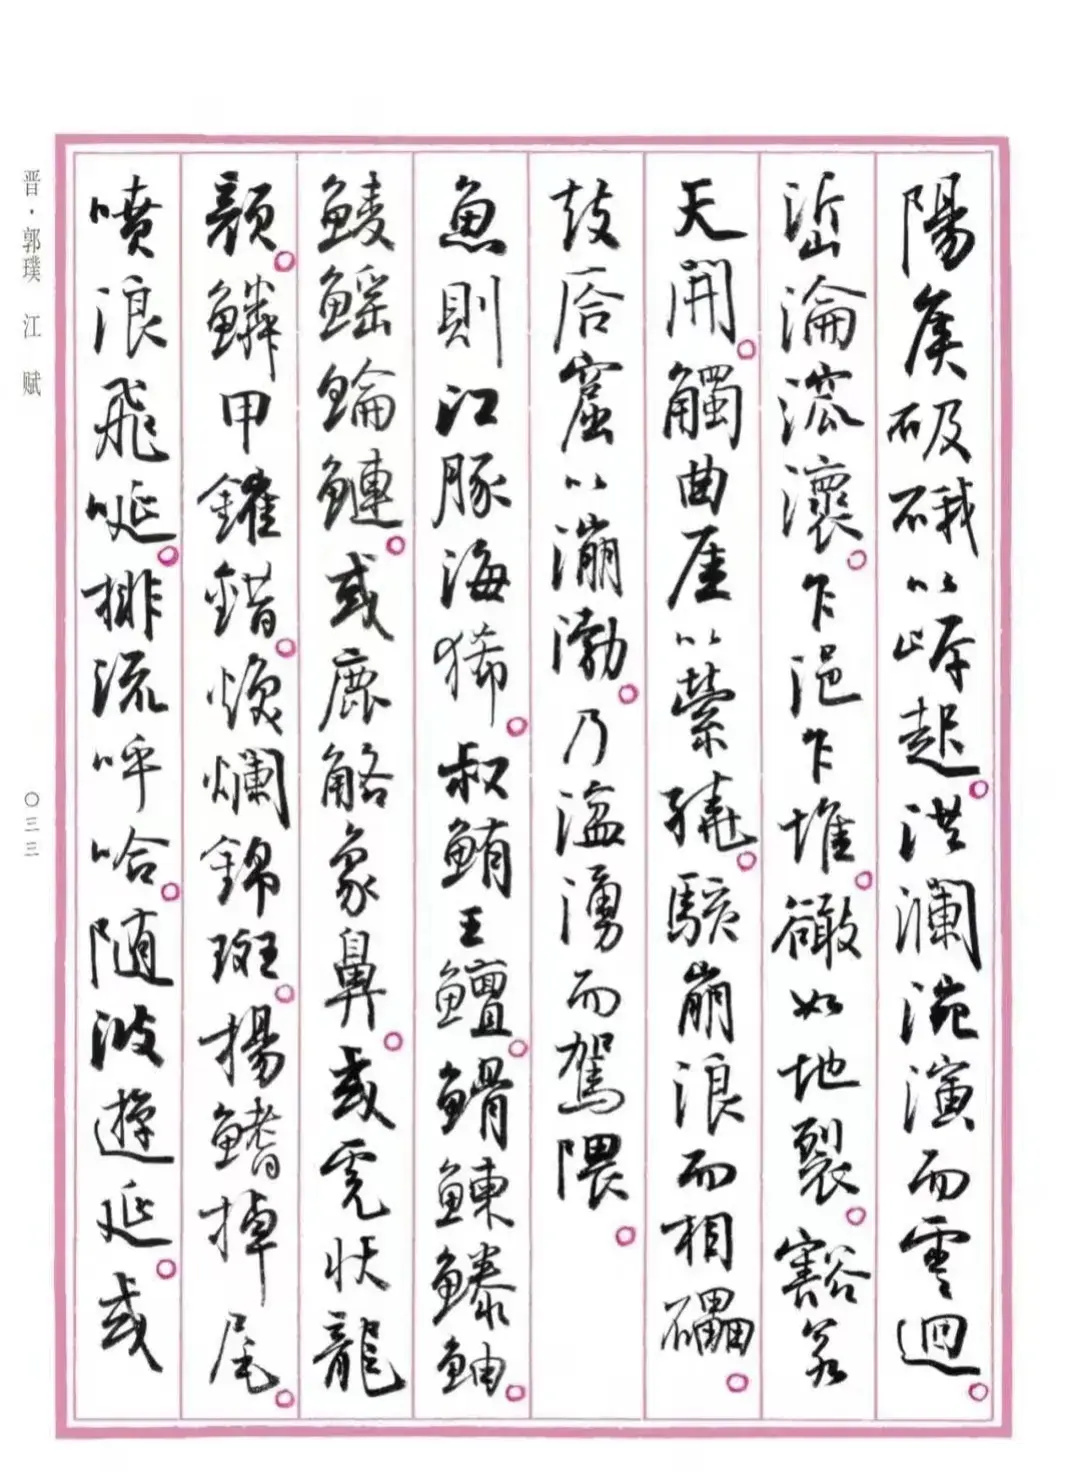 陽侯砐硪以岸起。洪瀾涴演而雲迴。
泝淪溛瀤。乍浥乍堆。豃如地裂。豁若
天開。觸曲厓以縈繞。駭崩浪而相礧。
鼓㕎窟以漰渤。乃湓湧而駕隈。
魚則江豚海狶。叔鮪王鱣。䱻鰊鰧鮋。
鯪鰩鯩鰱。或鹿觡象鼻。或虎狀龍
顏。鱗甲鏙錯。煥爛錦斑。揚鰭掉尾。
噴浪飛唌。排流呼哈。隨波遊延。或
晋·郭璞 江 赋
〇三三